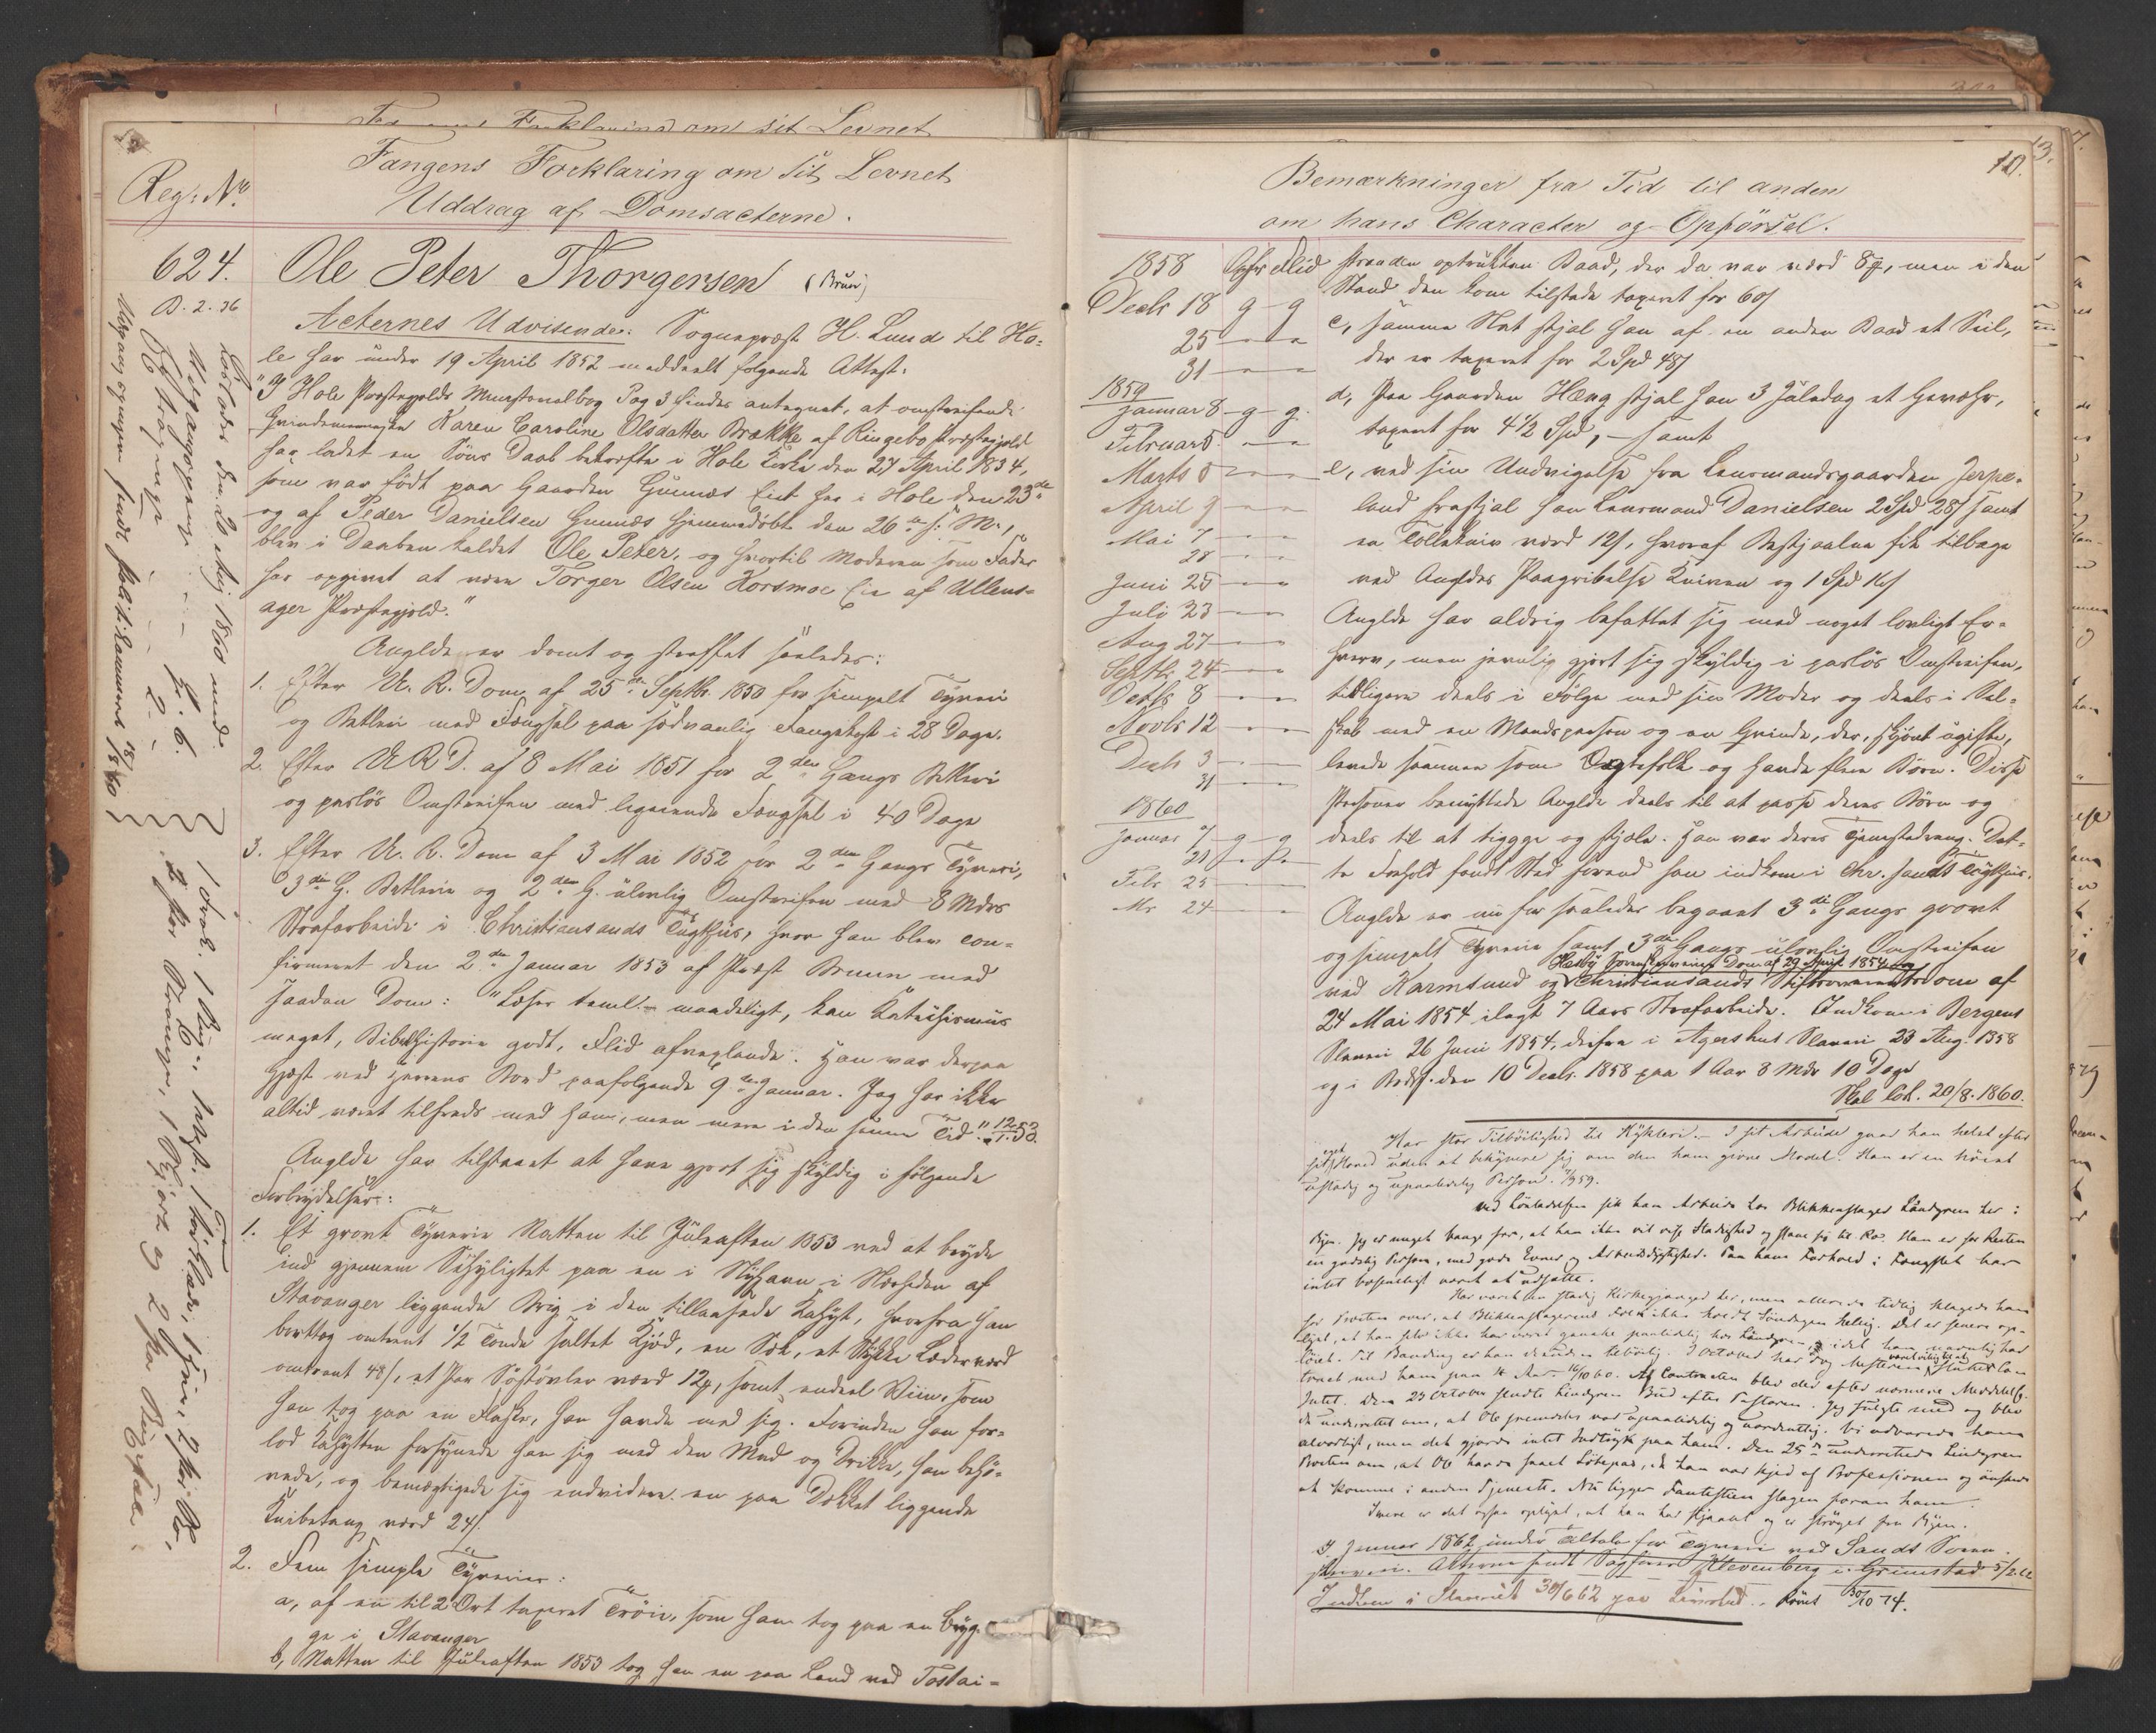 Fangens Forklaring om sit Levnet
Uddrag af Domsacterne.
Reg: No.
624.
B. 2. 36
Ole Peter Thorgersen (Bruun)
Acternes Udvisende: Sognepræst H. Lund til Ho=
le har under 19 April 1852 meddeelt følgende Attest:
"I Hole Præstegjelds Ministerialbog Pag 3 findes antegnet, at omstreifende
Qvindemenneske Karen Caroline Olsdatter Brække af Ringebo Præstegjeld
har ladet en Søns Daab bekræfte i Hole Kirke den 27 April 1834,
som var født paa Gaarden Gunnæs her i Hole den 23de
og af Peder Danielsen Gunnæs hjemmedøbt den 26de s: M:,
blev i Daaben kaldet Ole Peter, og hvortil Moderen som Fader
har opgivet at være Torger Olsen Korsmoe Eie af Ullens=
ager Præstegjeld."
Anglde er dømt og straffet saaledes:
1. Efter U. R. Dom af 25de Septbr. 1850 for simpelt Tyveri
og Betleri med Fængsel paa sædvanlig Fangekost i 28 Dage.
2. Efter U R D. af 8 Mai 1851 for 2den Gangs Betleri
og pasløs Omstreifen med ligeiende Fængsel i 40 Dage
3. Efter U. R. Dom af 3 Mai 1852 for 2den Gangs Tyveri,
3die G. Betlerie og 2den G. ulovlig Omstreifen med 8 Mdrs
Strafarbeide i Christiansands Tugthus, hvor han blev con=
firmeret den 2den Januar 1853 af Præst Bruun med
saadan Dom: "Læser temml: maadeligt, kan Katechismus
maget, Bibelhistorie godt, Flid afvexlende. Han var derpaa
Gjæst ved Herrens Bord paafølgende 9de Januar. Jeg har ikke
altid været tilfreds med ham, men mere i den senere Tid" 12/1.53.
Anglde har tilstaaet at have gjort sig skyldig i følgende
Forbrydelser:
1. Et grovt Tyverie Natten til Juleaften 1853 ved at bryde
ind gjennem Skylightet paa en i Nyhavn i Nærheden af
Stavanger liggende Brig i den tillaasede Kahyt, hvorfra han
borttog omtrent 1/2 Tønde saltet Kjød, en Sæk, et Stykke Læder værd
omtrent 48 s, et Par Søstøvler værd 12 s, samt endeel Viin, som
han tog paa en Flaske, han havde med sig. Forinden han for=
lod Kahytten forsynede han sig med den Mad og Drikke, han behø=
vede, og bemægtigede sig endvidere en paa Dækket liggende
Knibetang værd 24 s.
2. Fem simple Tyverier:
a, af en til 2 Ort taxeret Trøie, som han tog paa en Bryg=
ge i Stavanger
b, Natten til Juleaften 1853 tog han en paa Land ved Tastai=
Bemærkninger fra Tid til anden
om hans Character og Opførsel.
10.
1858 Opfør Flid
Decbr 18 g - g
25
31
1859
Januar 8 - g - g.
Februar 5
Marts 5
April 9
Mai 7
28
Juni 25
July 23
Aug 27
Septbr. 24
Octbr 8
Novbr 12
Decbr 3
31
1860
Januar 7 g - g
21
Febr 25
Mr 24
stranden optrukken Baad, der da var værd 8 , men i den
Stand den kom tilstede taxeret for 60 s
c, samme Nat stjal han af en anden Baad et Seil,
der er taxeret for 2 Spd 48 s
d, Paa Gaarden Hæng stjal han 3 Juledag et Gevæhr,
taxeret for 4 1/2 Spd, - samt
e, ved sin Undvigelse fra Lensmandsgaarden Jerpe=
land frastjal han Lensmand Danielsen 2 Spd 28 s samt
en Tollekniv værd 12 s, hvoraf Bestjaalne fik tilbage
ved Angldes Paagribelse Kniven og 1 Spd 16 s
Anglde har aldrig befattet sig med noget lovligt Er=
hverv, men jevnlig gjort sig skyldig i pasløs Omstreifen,
tidligere deels i Følge med sin Moder og deels i Sel=
skab med en Mandsperson og en Qvinde, der, skjønt ugifte,
levede sammen som Ægtefolk og havde flere Børn. Disse
Personer benyttede Anglde deels til at passe deres Børn og
deels til at tigge og stjæle. Han var deres Tjenestedreng. Det=
te Forhold fandt Sted forend han indkom i Chr. sands Tugthus.
Anglde er nu for saaledes begaaet 3die Gangs grovt
og simpelt Tyverie samt 3die Gangs ulovlig Omstreifen
ved Karmsund og Hesby Sorenskriveries Dom af 29 April 1854 og
Christiansands Stiftsoverretsdom af
24 Mai 1854 ilagt 7 Aars Strafarbeide. Indkom i Bergens
Slaveri 26 Juni 1854, derfra i Agershus Slaveri 23 Aug. 1858
og i Bodsf. den 10 Decbr. 1858 paa 1 Aar 8 Mdr 10 Dage
Skal løsl. 20/8. 1860.
Har stor Tilbøilighed til Hykleri. I sit Arbeide gaar han helst efter
sit eget Hoved uden at bekymre sig om den ham givne Model. Han er en høist
ustadig og upaalidelig Person.
ved Løsladelsen fik han Arbeide hos Blikkenslager Lindgren her i
Byen. Jeg er meget bange for, at han ikke vil vise Stadighed og slaae sig til Ro. Han er for Resten
en godslig Person, med gode Evner og Arbeidsdygtighed. Paa hans Forhold i Fængslet har
intet væsentligt været at udsætte.
Har været en flittig Kirkegjænger her, men allerede tidlig klagede han
for Præsten over, at Blikkenslagerens Folk ikke holdt Søndagen hellig. Det er senere op=
lyst, at han selv ikke har været ganske paalidelig hos Lindgren, idet han navnlig har
løiet. Til Banding er han desuden tilbøielig. I October har dog Mesteren sluttet Con
tract med ham paa 4 Aar 16/10 60. Af Contracten blev der efter nærmere Meddelelse
Intet. Den 23 October sendte Lindgren Bud efter Pastoren. Jeg fulgte med og blev
da underrettet om, at Ole fremdeles var upaalidelig og uordentlig. Vi advarede ham
alvorligt, men det gjorde intet Indtryk paa ham. Den 25de underrettede Lindgren
Præsten om, at Ole havde faaet Løbepas, da han var kjed af Professionen og ønskede
at komme i anden Tjeneste. Nu ligger Fantestien slagen foran ham.
Senere er det ogsaa oplyst, at han har stjaalet og er strøget fra Byen.
I Januar 1862 under Tiltale for Tyveri ved Sands Soren=
skriveri. Acterne sendt Sagfører Klevenberg i Grimstad 5/2 62
Indkom i Slaveriet 30/6 62 paa Livstid. Rømt 30/10 74.
Løslades den 20 Aug 1860 med